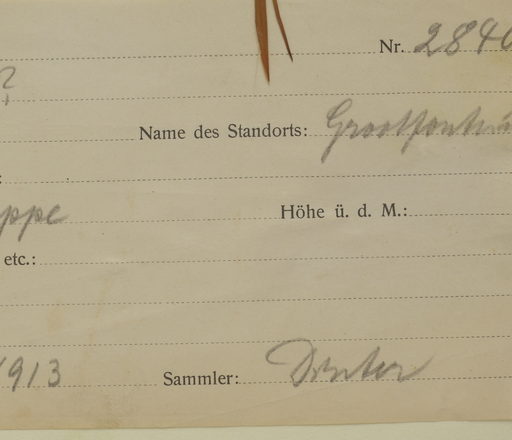 Nr. 2840
?
Name des Standorts: Grootfontein
:
ppe Höhe ü. d. M.:
etc.:
1913 Sammler: Dinter